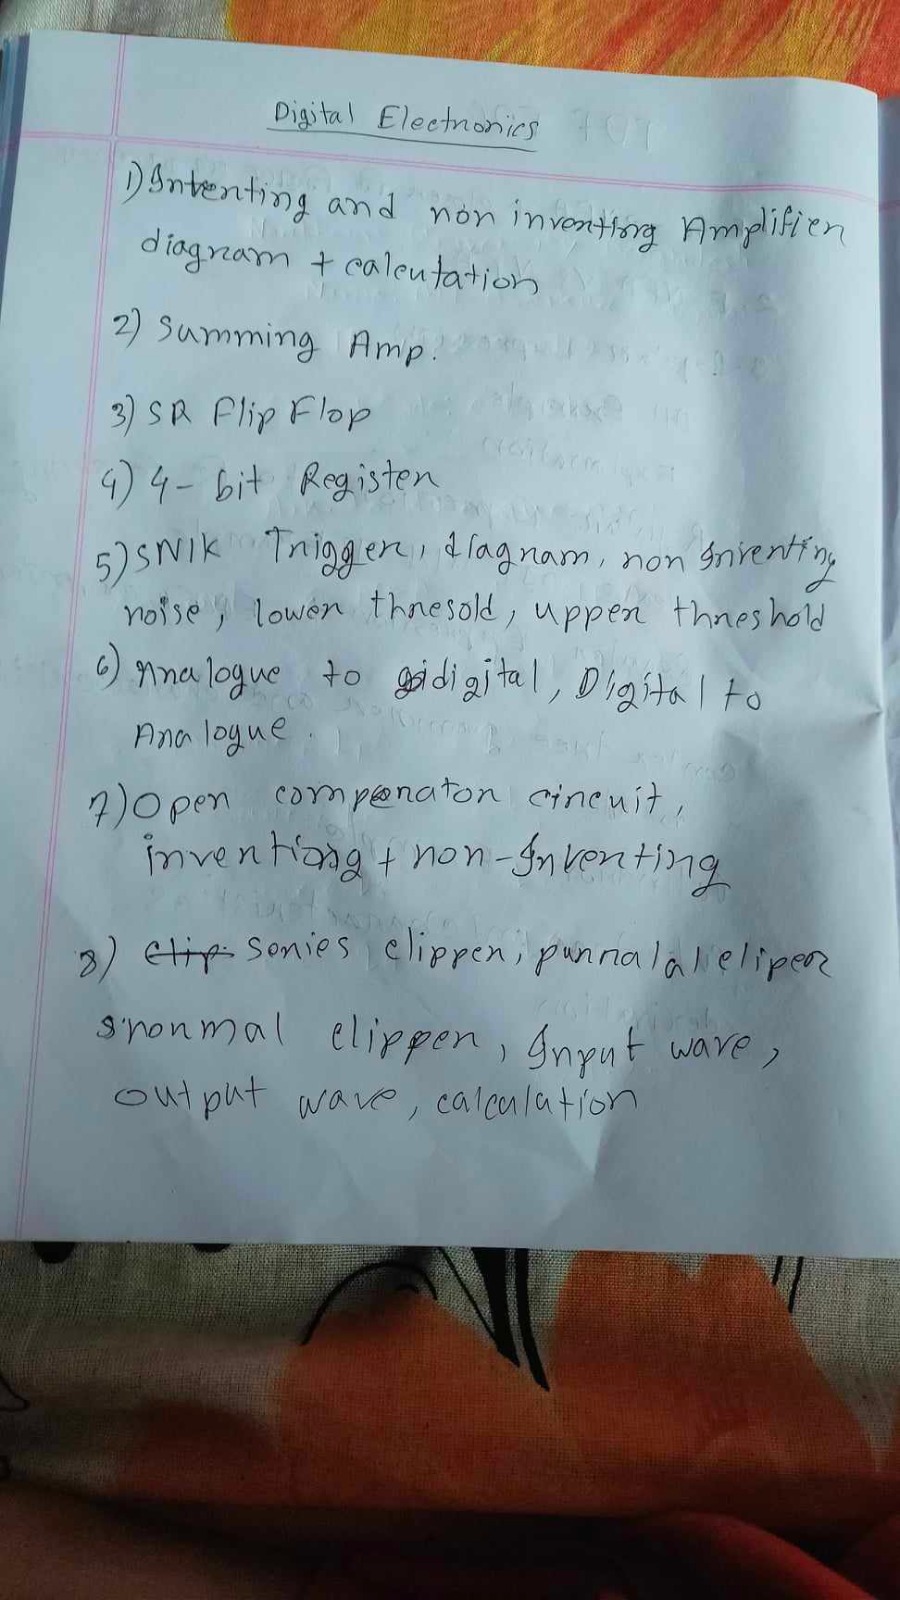 Digital Electronics
1) Inventing and non inventing Amplifier
diagram + calculation
2) Summing Amp.
3) SR Flip Flop
4) 4-bit Register
5) SNIK Trigger, diagnam, non Inventing
noise, lower thresold, upper threshold
6) Analogue to digital, Digital to
Analogue.
7) Open comparaton circuit,
inventing + non-Inventing
8) Clip. series clipper, parralal cliper
normal clipper, Input wave,
output wave, calculation